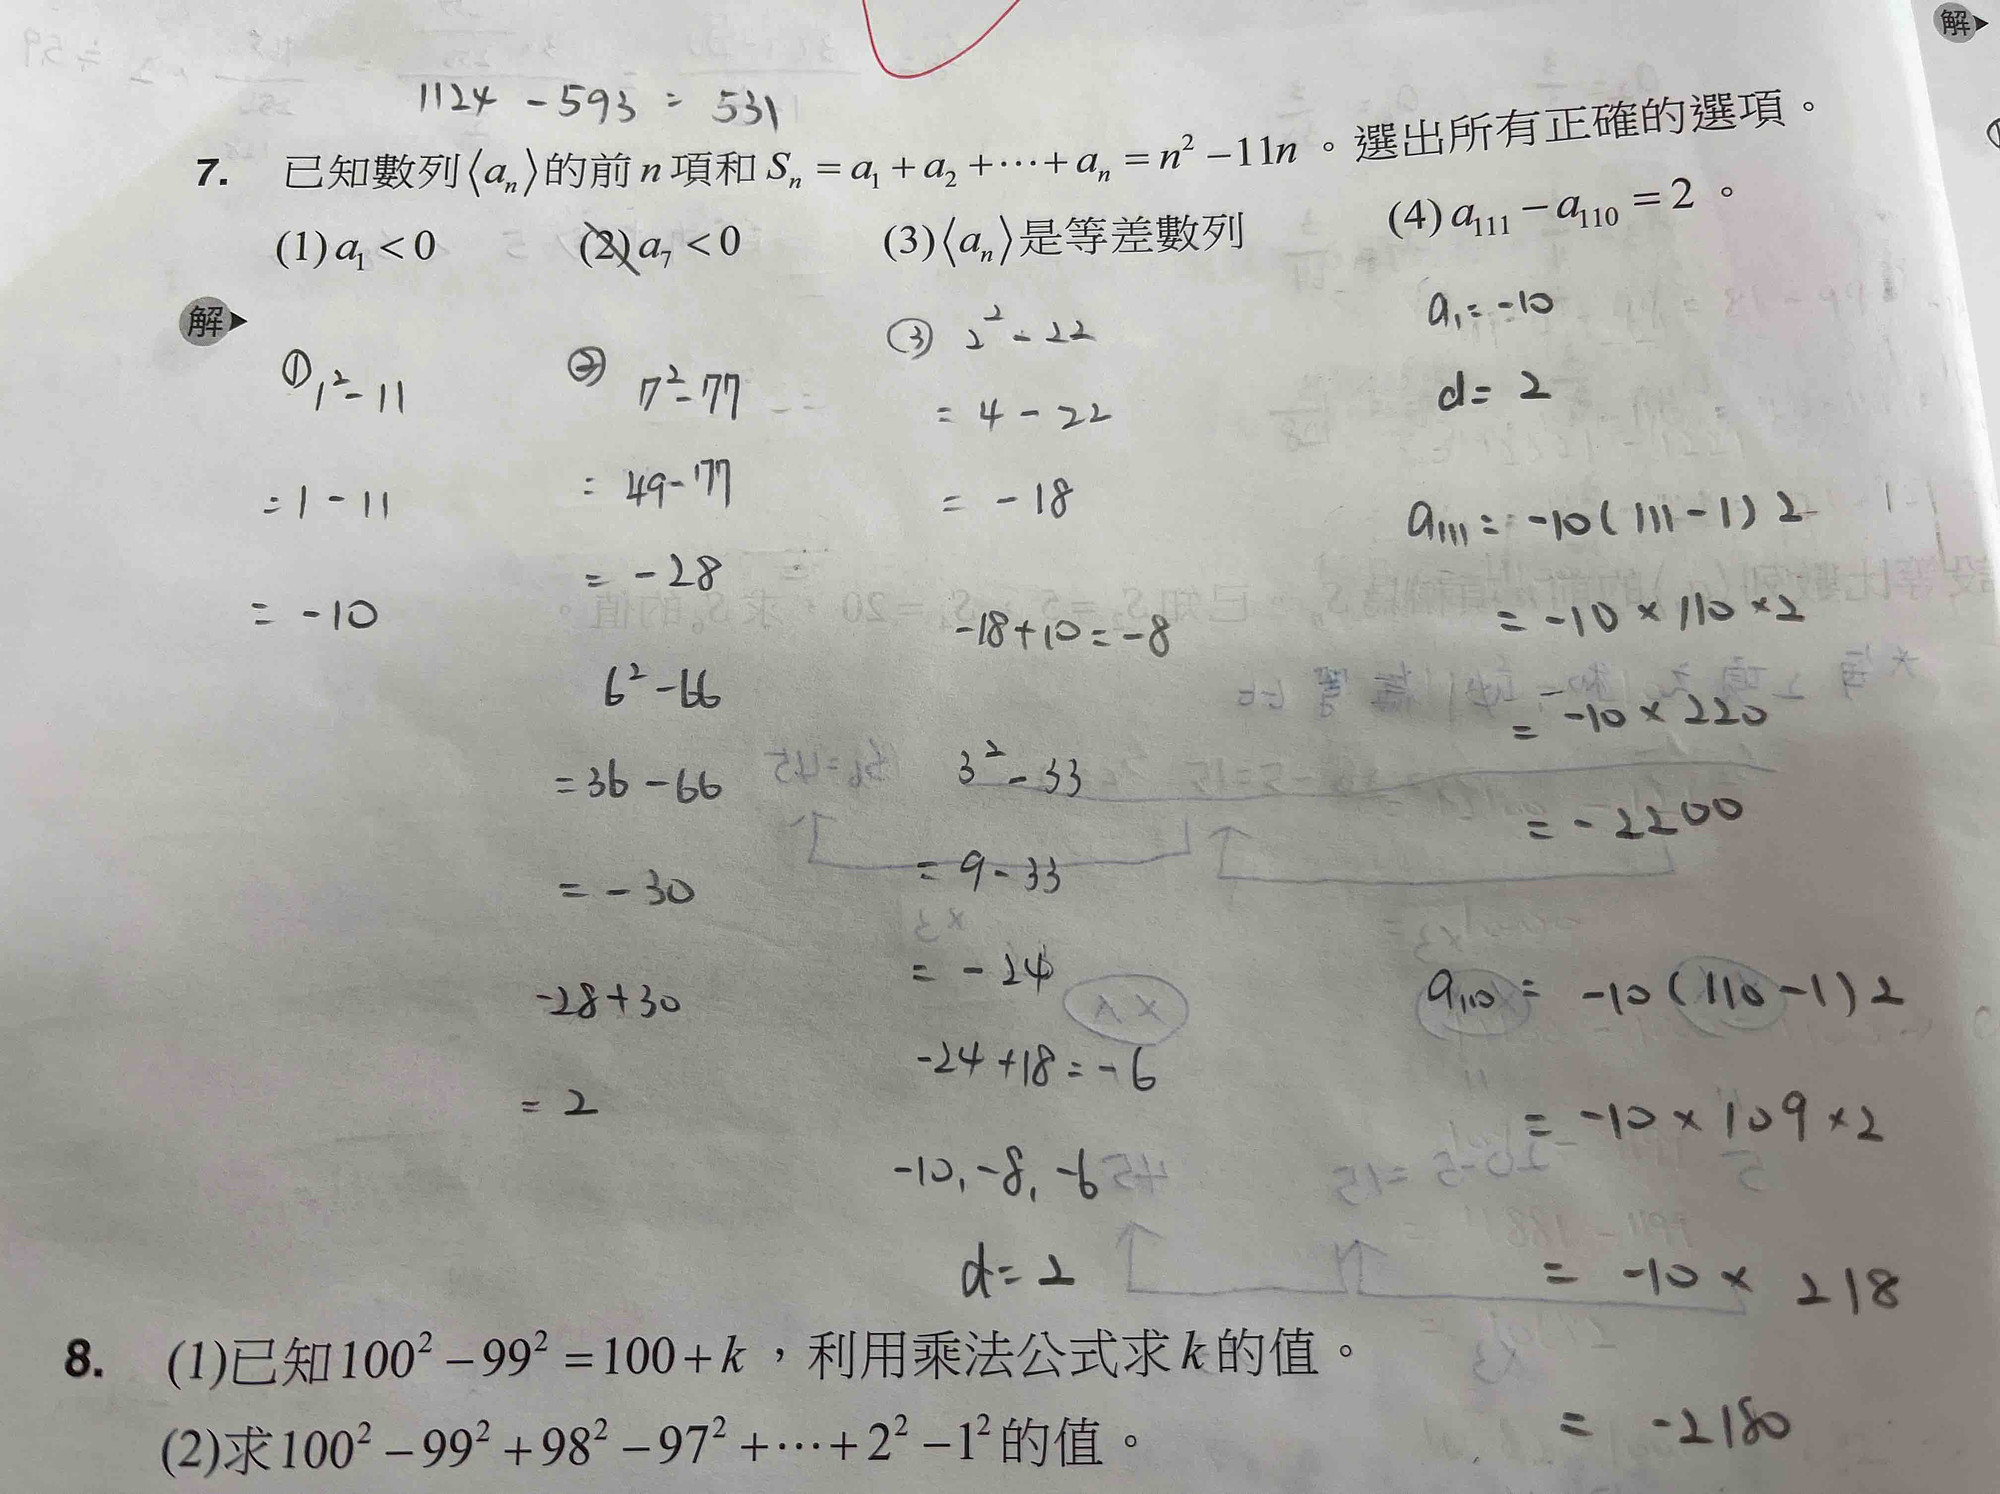 解
1124 - 593 = 531
7. 已知數列⟨aₙ⟩的前 n 項和 Sₙ = a₁ + a₂ + ⋯ + aₙ = n² − 11n 。選出所有正確的選項。
(1) a₁ < 0 (2) a₇ < 0 (3)⟨aₙ⟩是等差數列 (4) a₁₁₁ − a₁₁₀ = 2 。
解
① 1² - 11
= 1 - 11
= -10
② 7² - 77
= 49 - 77
= -28
6² - 66
= 36 - 66
= -30
-28 + 30
= 2
③ 2² - 22
= 4 - 22
= -18
-18 + 10 = -8
3² - 33
= 9 - 33
= -24
-24 + 18 = -6
-10, -8, -6
d = 2
a₁ = -10
d = 2
a₁₁₁ = -10 ( 111 - 1 ) 2
= -10 × 110 × 2
= -10 × 220
= -2200
a₁₁₀ = -10 ( 110 - 1 ) 2
= -10 × 109 × 2
= -10 × 218
= -2180
8. (1)已知 100² − 99² = 100 + k ，利用乘法公式求 k 的值。
(2)求 100² − 99² + 98² − 97² + ⋯ + 2² − 1² 的值。